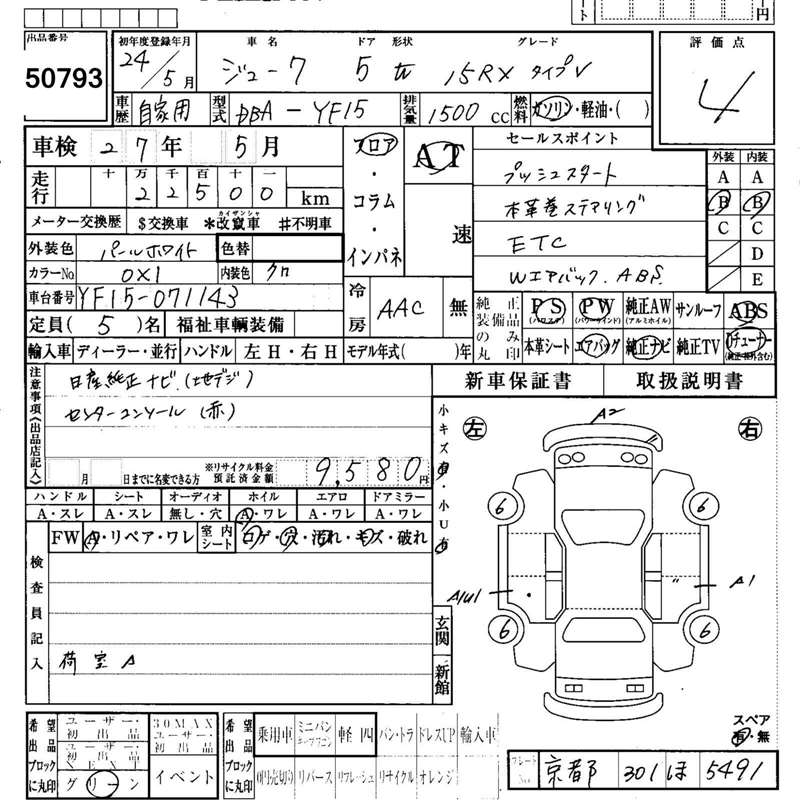 出品番号
50793
初年度登録年月 車名 ドア 形状 グレード
24/5月 ジューク 5 W 15RX タイプV
評価点
4
車歴 自家用 型式 DBA-YF15 排気量 1500cc 燃料 ガソリン・軽油・( )
車検 27年 5月
走行 十 万 千 百 十 一
22500 km
メーター交換歴 $交換車 *改竄車 カイザンシャ #不明車
外装色 パールホワイト 色替
カラーNo 0X1 内装色 クロ
車台番号 YF15-071143
定員(5)名 福祉車輌装備
フロア・コラム・インパネ
AT
速
冷房 AAC 無
セールスポイント
プッシュスタート
本革巻ステアリング
ETC
Wエアバック.ABS.
外装 内装
A A
B B
C C
D
E
純正装備品のみ丸印
PS (パワステ) PW (パワーウインド) 純正AW (アルミホイル) サンルーフ ABS
本革シート エアバッグ 純正ナビ 純正TV チューナー (純正・社外含む)
輸入車 ディーラー・並行 ハンドル 左H・右H モデル年式( )年
新車保証書 取扱説明書
注意事項(出品店記入)
日産純正ナビ(地デジ)
センターコンソール(赤)
月 日までに名変できる方
※リサイクル料金預託済金額 9,580円
ハンドル シート オーディオ ホイル エアロ ドアミラー
A・スレ A・スレ 無し・穴 A・ワレ A・ワレ A・ワレ
FW A・リペア・ワレ 室内シート コゲ・穴・汚れ・キズ・破れ
検査員記入
荷室A
小キズ有・小U有
玄関
新館
左 右
A2
6 6
A1U1 A1
6 6
スペア
有・無
希望出品ブロックに丸印
ユーザー・初出品 30MAXユーザー・初出品
ユーザー・初出品NEXT
グリーン イベント
希望出品ブロックに丸印
乗用車 ミニバン 軽四 バン・トラ ドレスUP 輸入車
0円売切り リバース リフレッシュ リサイクル オレンジ
プレートNo 京都 301 ほ 5491